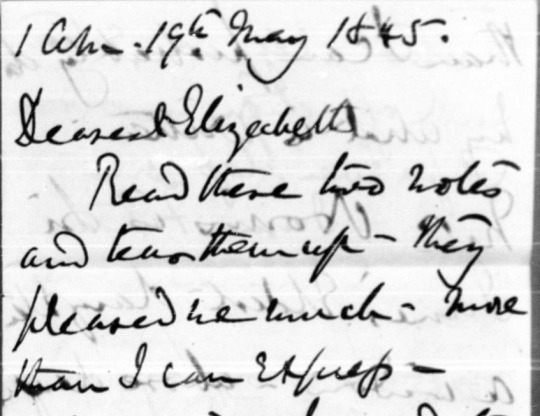 1 Am. 19th May 1845.
Dearest Elizabeth
Read these two notes
and tear them up - They
pleased me much - more
than I can express -